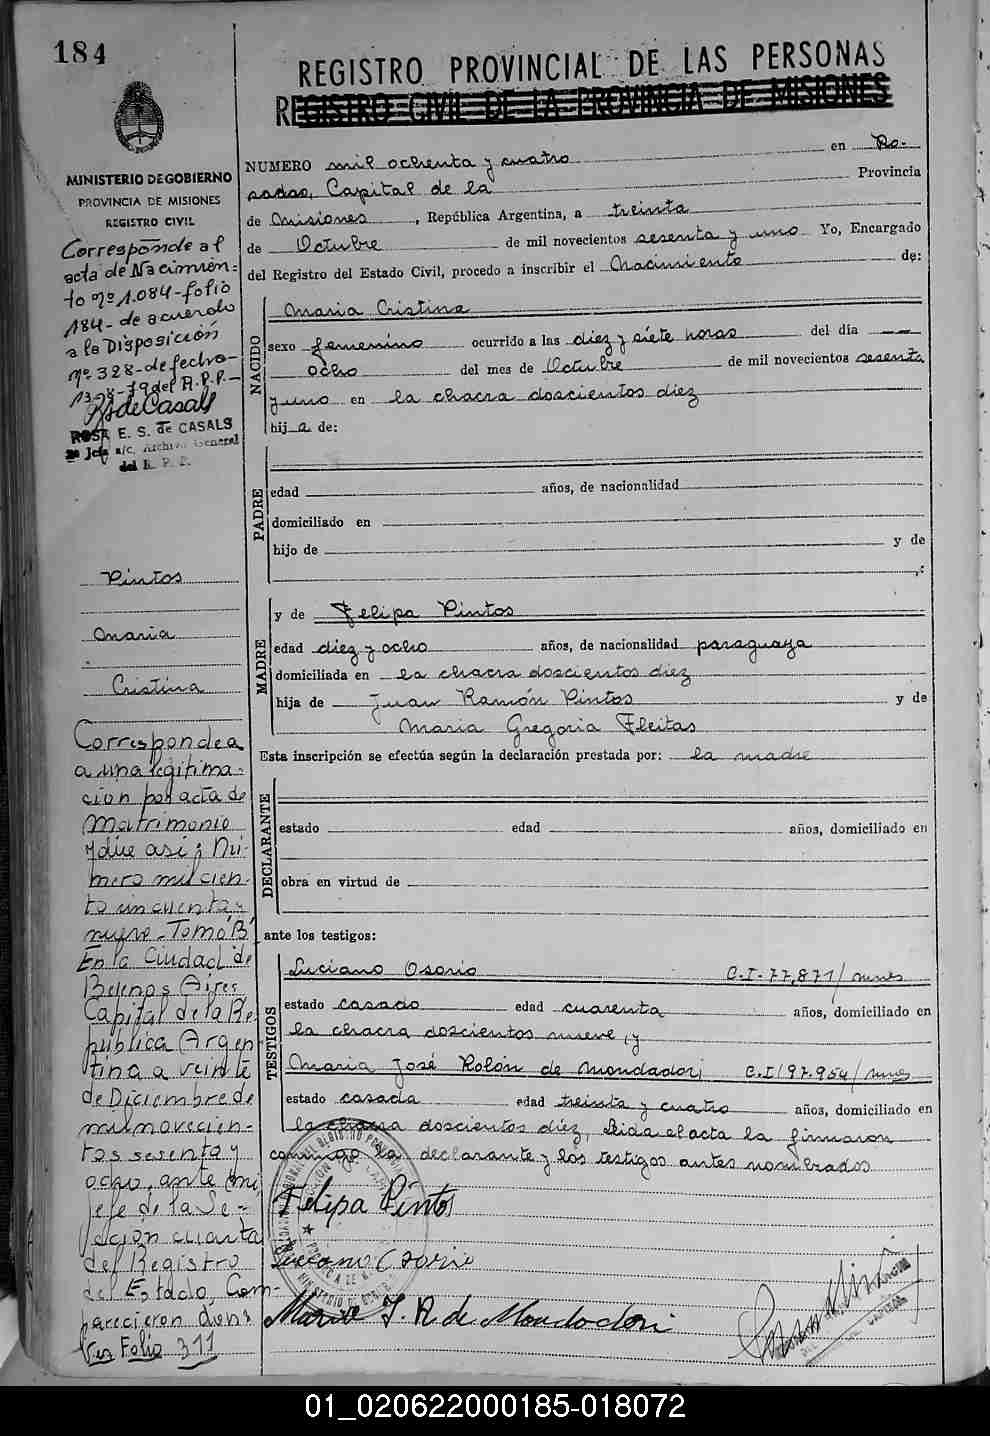 184
MINISTERIO DE GOBIERNO
PROVINCIA DE MISIONES
REGISTRO CIVIL
Corresponde al
acta de Nacimien-
to nº 1.084 - folio
184 - de acuerdo
a la Disposición
nº 328 - de fecha -
ROSA E. S. de CASALS
2ª Jefa a/c. Archivo General
del R. P. P.
Pintos
Maria
Cristina
Corresponde a
a una legitima-
cion por acta de
Matrimonio
que asi: Nú-
mero mil cien-
to cincuenta y
nueve - Tomo "B"
En la Ciudad de
Buenos Aires
Capital de la Re
pública Argen
tina a veinte
de Diciembre de
mil novecien-
tos sesenta y
ocho, ante mi
jefe de la Se-
ción cuarta
del Registro
del Estado, Com-
parecieron don:
Ver Folio 311
REGISTRO PROVINCIAL DE LAS PERSONAS
REGISTRO CIVIL DE LA PROVINCIA DE MISIONES
NUMERO mil ochenta y cuatro en Po-
sadas, Capital de la Provincia
de Misiones, República Argentina, a treinta
de Octubre de mil novecientos sesenta y uno Yo, Encargado
del Registro del Estado Civil, procedo a inscribir el Nacimiento de:
NACIDO
Maria Cristina
sexo femenino ocurrido a las diez y siete horas del día
ocho del mes de Octubre de mil novecientos sesenta
y uno en la chacra doscientos diez
hij a de:
PADRE
edad años, de nacionalidad
domiciliado en
hijo de y de
MADRE
y de Felipa Pintos
edad diez y ocho años, de nacionalidad paraguaya
domiciliada en la chacra doscientos diez
hija de Juan Ramón Pintos y de
Maria Gregoria Fleitas
Esta inscripción se efectúa según la declaración prestada por: la madre
DECLARANTE
estado edad años, domiciliado en
obra en virtud de
ante los testigos:
TESTIGOS
Luciano Osorio C.I. 77,871/mnes
estado casado edad cuarenta años, domiciliado en
la chacra doscientos nueve, y
Maria José Rolón de Mondadori C.I/97.954/mnes
estado casada edad treinta y cuatro años, domiciliado en
la chacra doscientos diez, Leida el acta la firmaron
conmigo la declarante y los testigos antes nombrados
Felipa Pintos
Luciano Osorio
Maria J. R. de Mondadori
01_020622000185-018072